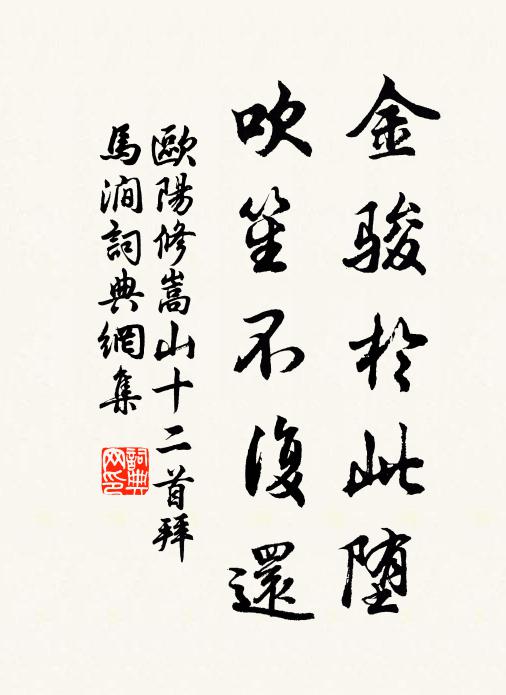 金駿於此墮
吹笙不復還
歐陽修嵩山十二首拜
馬澗詞典網集
詞典网印